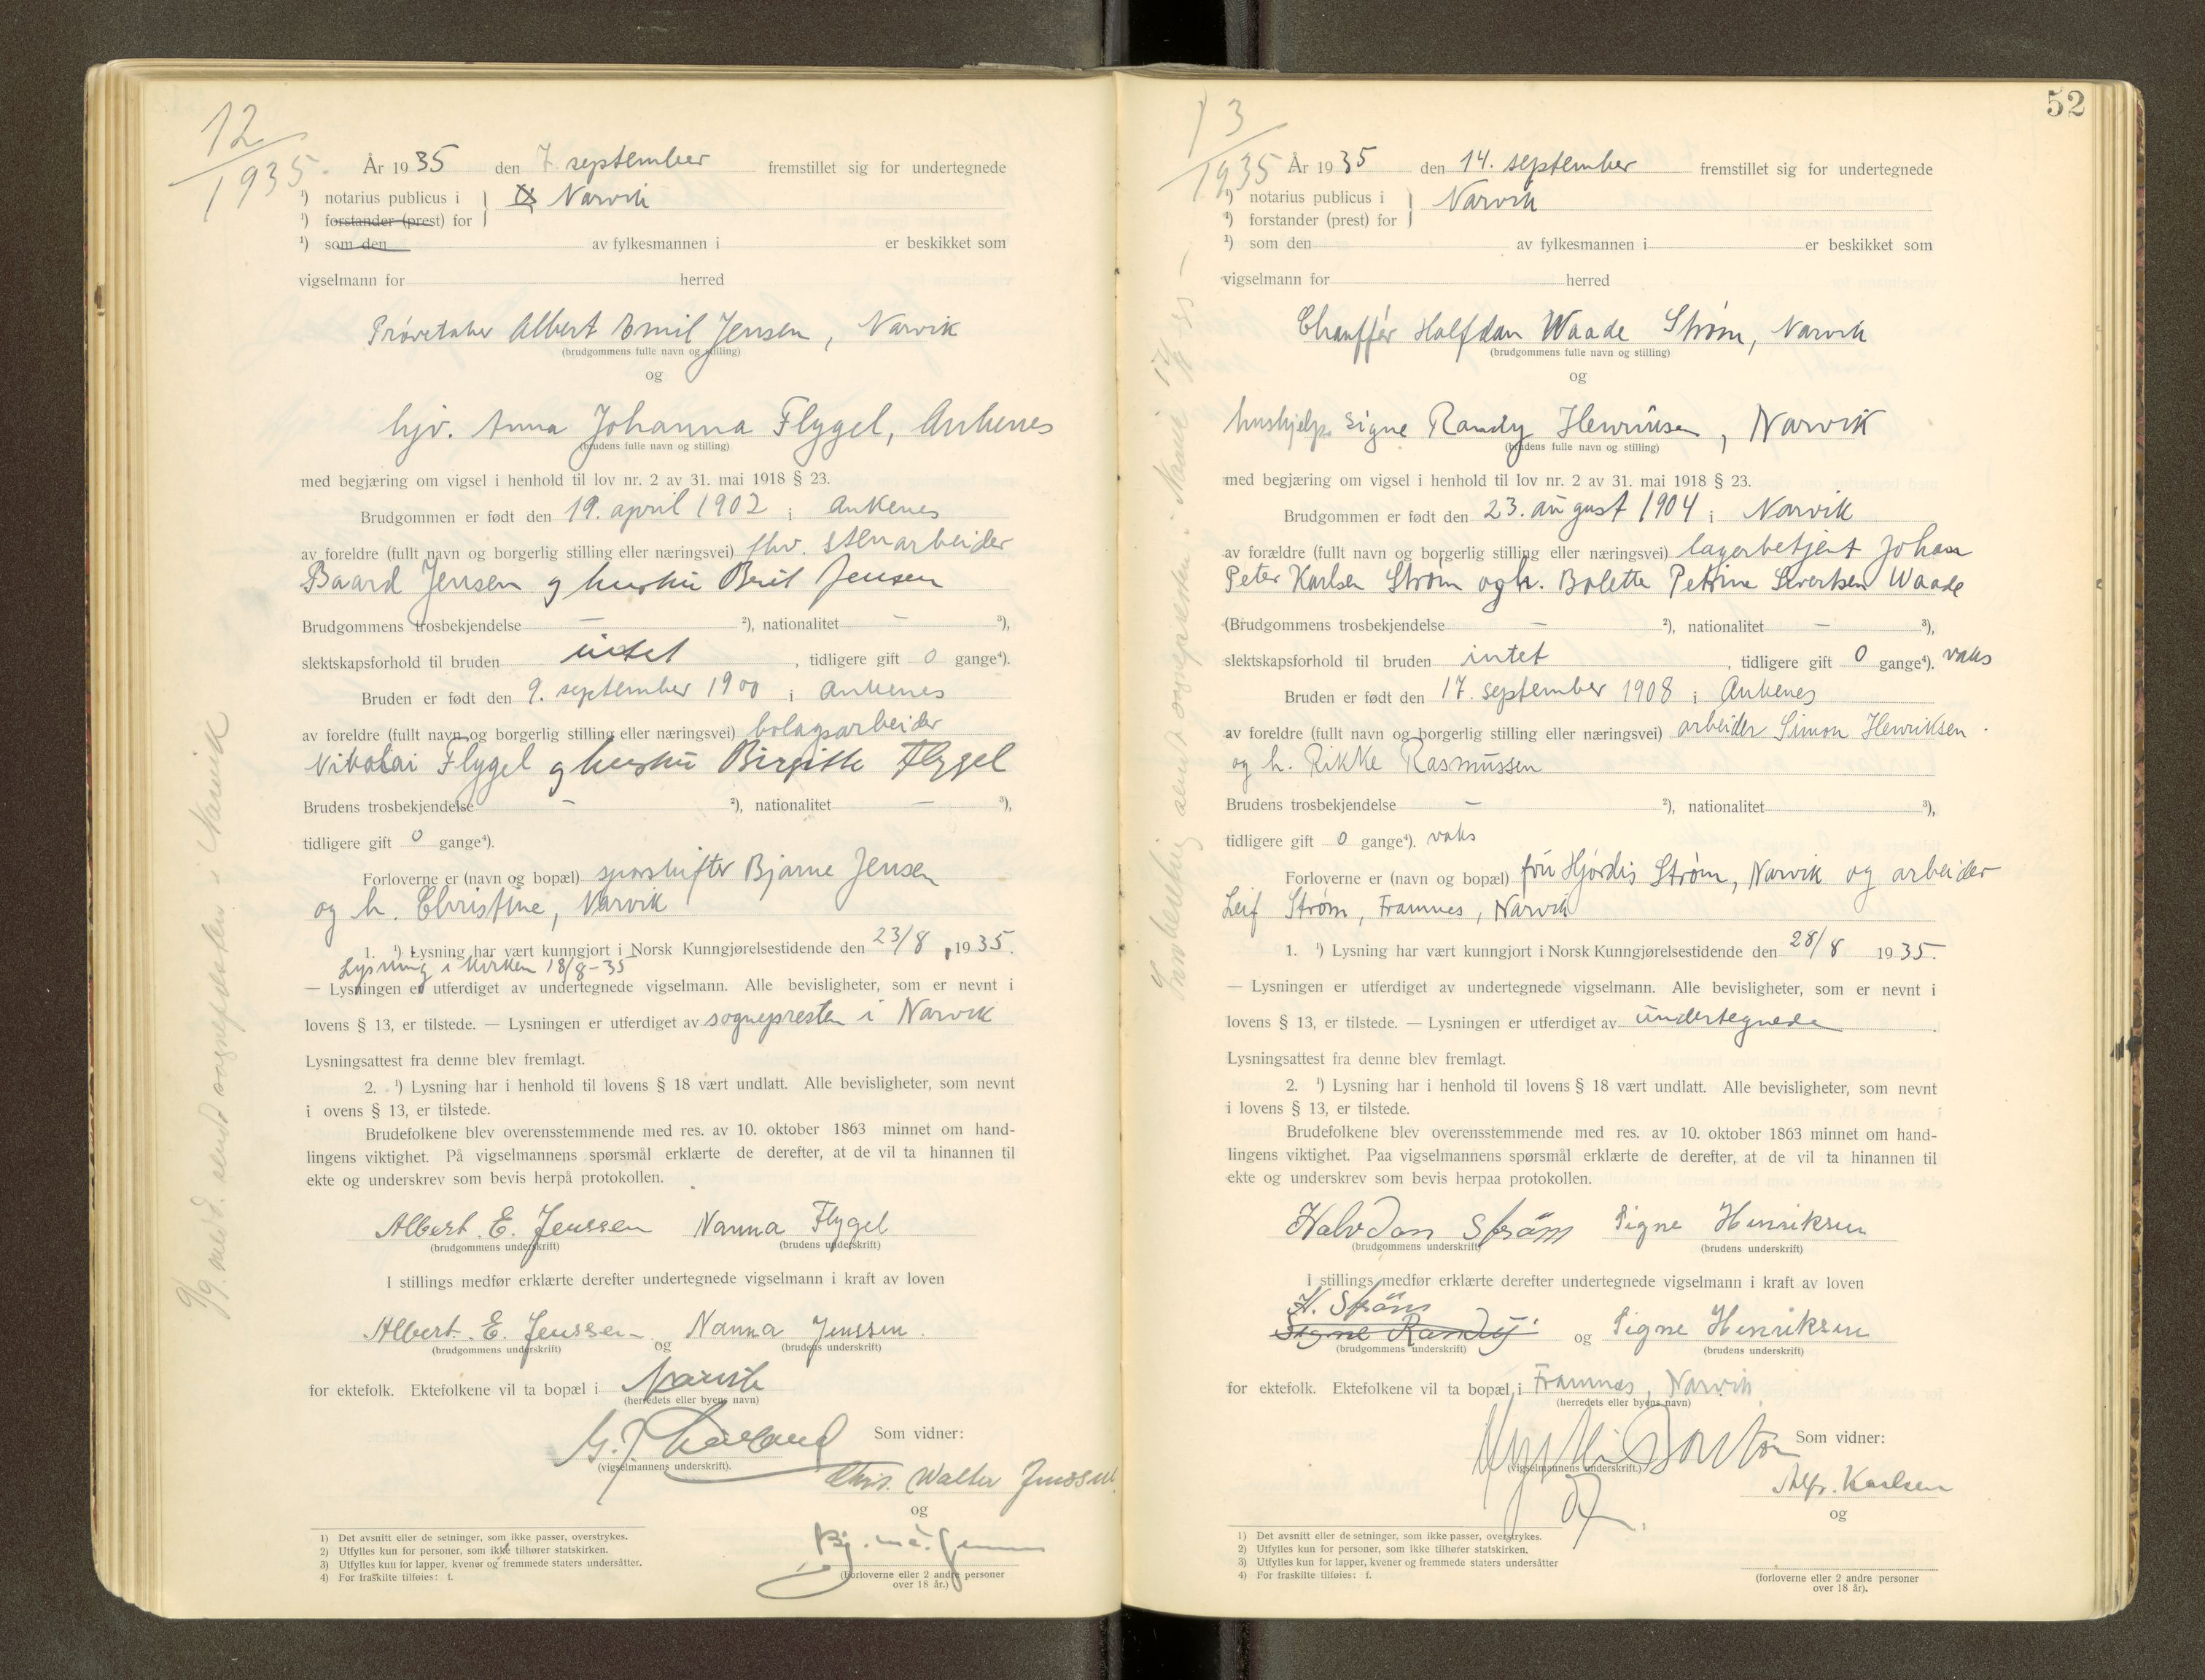 12
1935.
År 1935 den 7. september fremstillet sig for undertegnede
¹) notarius publicus i Narvik
¹) forstander (prest) for
¹) som den av fylkesmannen i er beskikket som
vigselmann for herred
Prøvetaker Albert Emil Jensen, Narvik
(brudgommens fulle navn og stilling)
og
hjv. Anna Johanna Flygel, Ankenes
(brudens fulle navn og stilling)
med begjæring om vigsel i henhold til lov nr. 2 av 31. mai 1918 § 23.
Brudgommen er født den 19. april 1902 i Ankenes
av foreldre (fullt navn og borgerlig stilling eller næringsvei) fhv. stenarbeider
Baard Jensen og hustru Berit Jensen
Brudgommens trosbekjendelse — ²), nationalitet — ³),
slektskapsforhold til bruden intet, tidligere gift 0 gange⁴).
Bruden er født den 9. september 1900 i Ankenes
av foreldre (fullt navn og borgerlig stilling eller næringsvei) bolagsarbeider
Nikolai Flygel og hustru Birgitte Flygel
Brudens trosbekjendelse — ²), nationalitet — ³),
tidligere gift 0 gange⁴).
Forloverne er (navn og bopæl) sporskifter Bjarne Jensen
og h. Christine, Narvik
1. ¹) Lysning har vært kunngjort i Norsk Kunngjørelsestidende den 23/8 1935.
Lysning i kirken 18/8-35
— Lysningen er utferdiget av undertegnede vigselmann. Alle bevisligheter, som er nevnt i
lovens § 13, er tilstede. — Lysningen er utferdiget av sognepresten i Narvik
Lysningsattest fra denne blev fremlagt.
2. ¹) Lysning har i henhold til lovens § 18 vært undlatt. Alle bevisligheter, som nevnt
i ovens § 13, er tilstede.
Brudefolkene blev overensstemmende med res. av 10. oktober 1863 minnet om hand-
lingens viktighet. På vigselmannens spørsmål erklærte de derefter, at de vil ta hinannen til
ekte og underskrev som bevis herpå protokollen.
Albert. E. Jenssen Nanna Flygel
(brudgommens underskrift) (brudens underskrift)
I stillings medfør erklærte derefter undertegnede vigselmann i kraft av loven
Albert. E. Jenssen og Nanna Jenssen.
(brudgommens underskrift) (brudens underskrift)
for ektefolk. Ektefolkene vil ta bopæl i Narvik
(herredets eller byens navn)
Som vidner:
(vigselmannens underskrift).
Chrs. Walter Jenssen
og
(Forloverne eller 2 andre personer
over 18 år.)
1) Det avsnitt eller de setninger, som ikke passer, overstrykes.
2) Utfylles kun for personer, som ikke tilhører statskirken.
3) Utfylles kun for lapper, kvener og fremmede staters undersåtter.
4) For fraskilte tilføies: f.
9/9. medd. sendt sognepresten i Narvik
52
13
1935
År 1935 den 14. september fremstillet sig for undertegnede
¹) notarius publicus i Narvik
¹) forstander (prest) for
¹) som den av fylkesmannen i er beskikket som
vigselmann for herred
Chauffør Halfdan Waade Strøm, Narvik
(brudgommens fulle navn og stilling)
og
hushjelp Signe Randy Henriksen, Narvik
(brudens fulle navn og stilling)
med begjæring om vigsel i henhold til lov nr. 2 av 31. mai 1918 § 23.
Brudgommen er født den 23. august 1904 i Narvik
av forældre (fullt navn og borgerlig stilling eller næringsvei) lagerbetjent Johan
Peter Karlsen Strøm og h. Bolette Petrine Sivertsen Waade
(Brudgommens trosbekjendelse — ²), nationalitet — ³),
slektskapsforhold til bruden intet, tidligere gift 0 gange⁴). vaks
Bruden er født den 17. september 1908 i Ankenes
av foreldre (fullt navn og borgerlig stilling eller næringsvei) arbeider Simon Henriksen
og h. Rikke Rasmussen
Brudens trosbekjendelse — ²), nationalitet ³),
tidligere gift 0 gange⁴). vaks
Forloverne er (navn og bopæl) fru Hjørdis Strøm, Narvik og arbeider
Leif Strøm, Framnes, Narvik
1. ¹) Lysning har vært kunngjort i Norsk Kunngjørelsestidende den 28/8 1935.
— Lysningen er utferdiget av undertegnede vigselmann. Alle bevisligheter, som er nevnt i
lovens § 13, er tilstede. — Lysningen er utferdiget av undertegnede.
Lysningsattest fra denne blev fremlagt.
2. ¹) Lysning har i henhold til lovens § 18 vært undlatt. Alle bevisligheter, som nevnt
i lovens § 13, er tilstede.
Brudefolkene blev overensstemmende med res. av 10. oktober 1863 minnet om hand-
lingens viktighet. Paa vigselmannens spørsmål erklærte de derefter, at de vil ta hinannen til
ekte og underskrev som bevis herpaa protokollen.
Halvdan Strøm Signe Henriksen
(brudgommens underskrift) (brudens underskrift)
I stillings medfør erklærte derefter undertegnede vigselmann i kraft av loven
H. Strøm
Signe Randy og Signe Henriksen
(brudgommens underskrift) (brudens underskrift)
for ektefolk. Ektefolkene vil ta bopæl i Framnes, Narvik
(herredets eller byens navn)
Som vidner:
(vigselmannens underskrift.)
Alfr. Karlsen
og
(forloverne eller 2 andre personer
over 18 år).
1) Det avsnitt eller de setninger, som ikke passer, overstrykes.
2) Utfylles kun for personer, som ikke tilhører statskirken.
3) Utfylles kun for lapper, kvener og fremmede staters undersåtter
4) For fraskilte tilføies: f.
Innberetning sendt sognepresten i Narvik 17/9 35 —